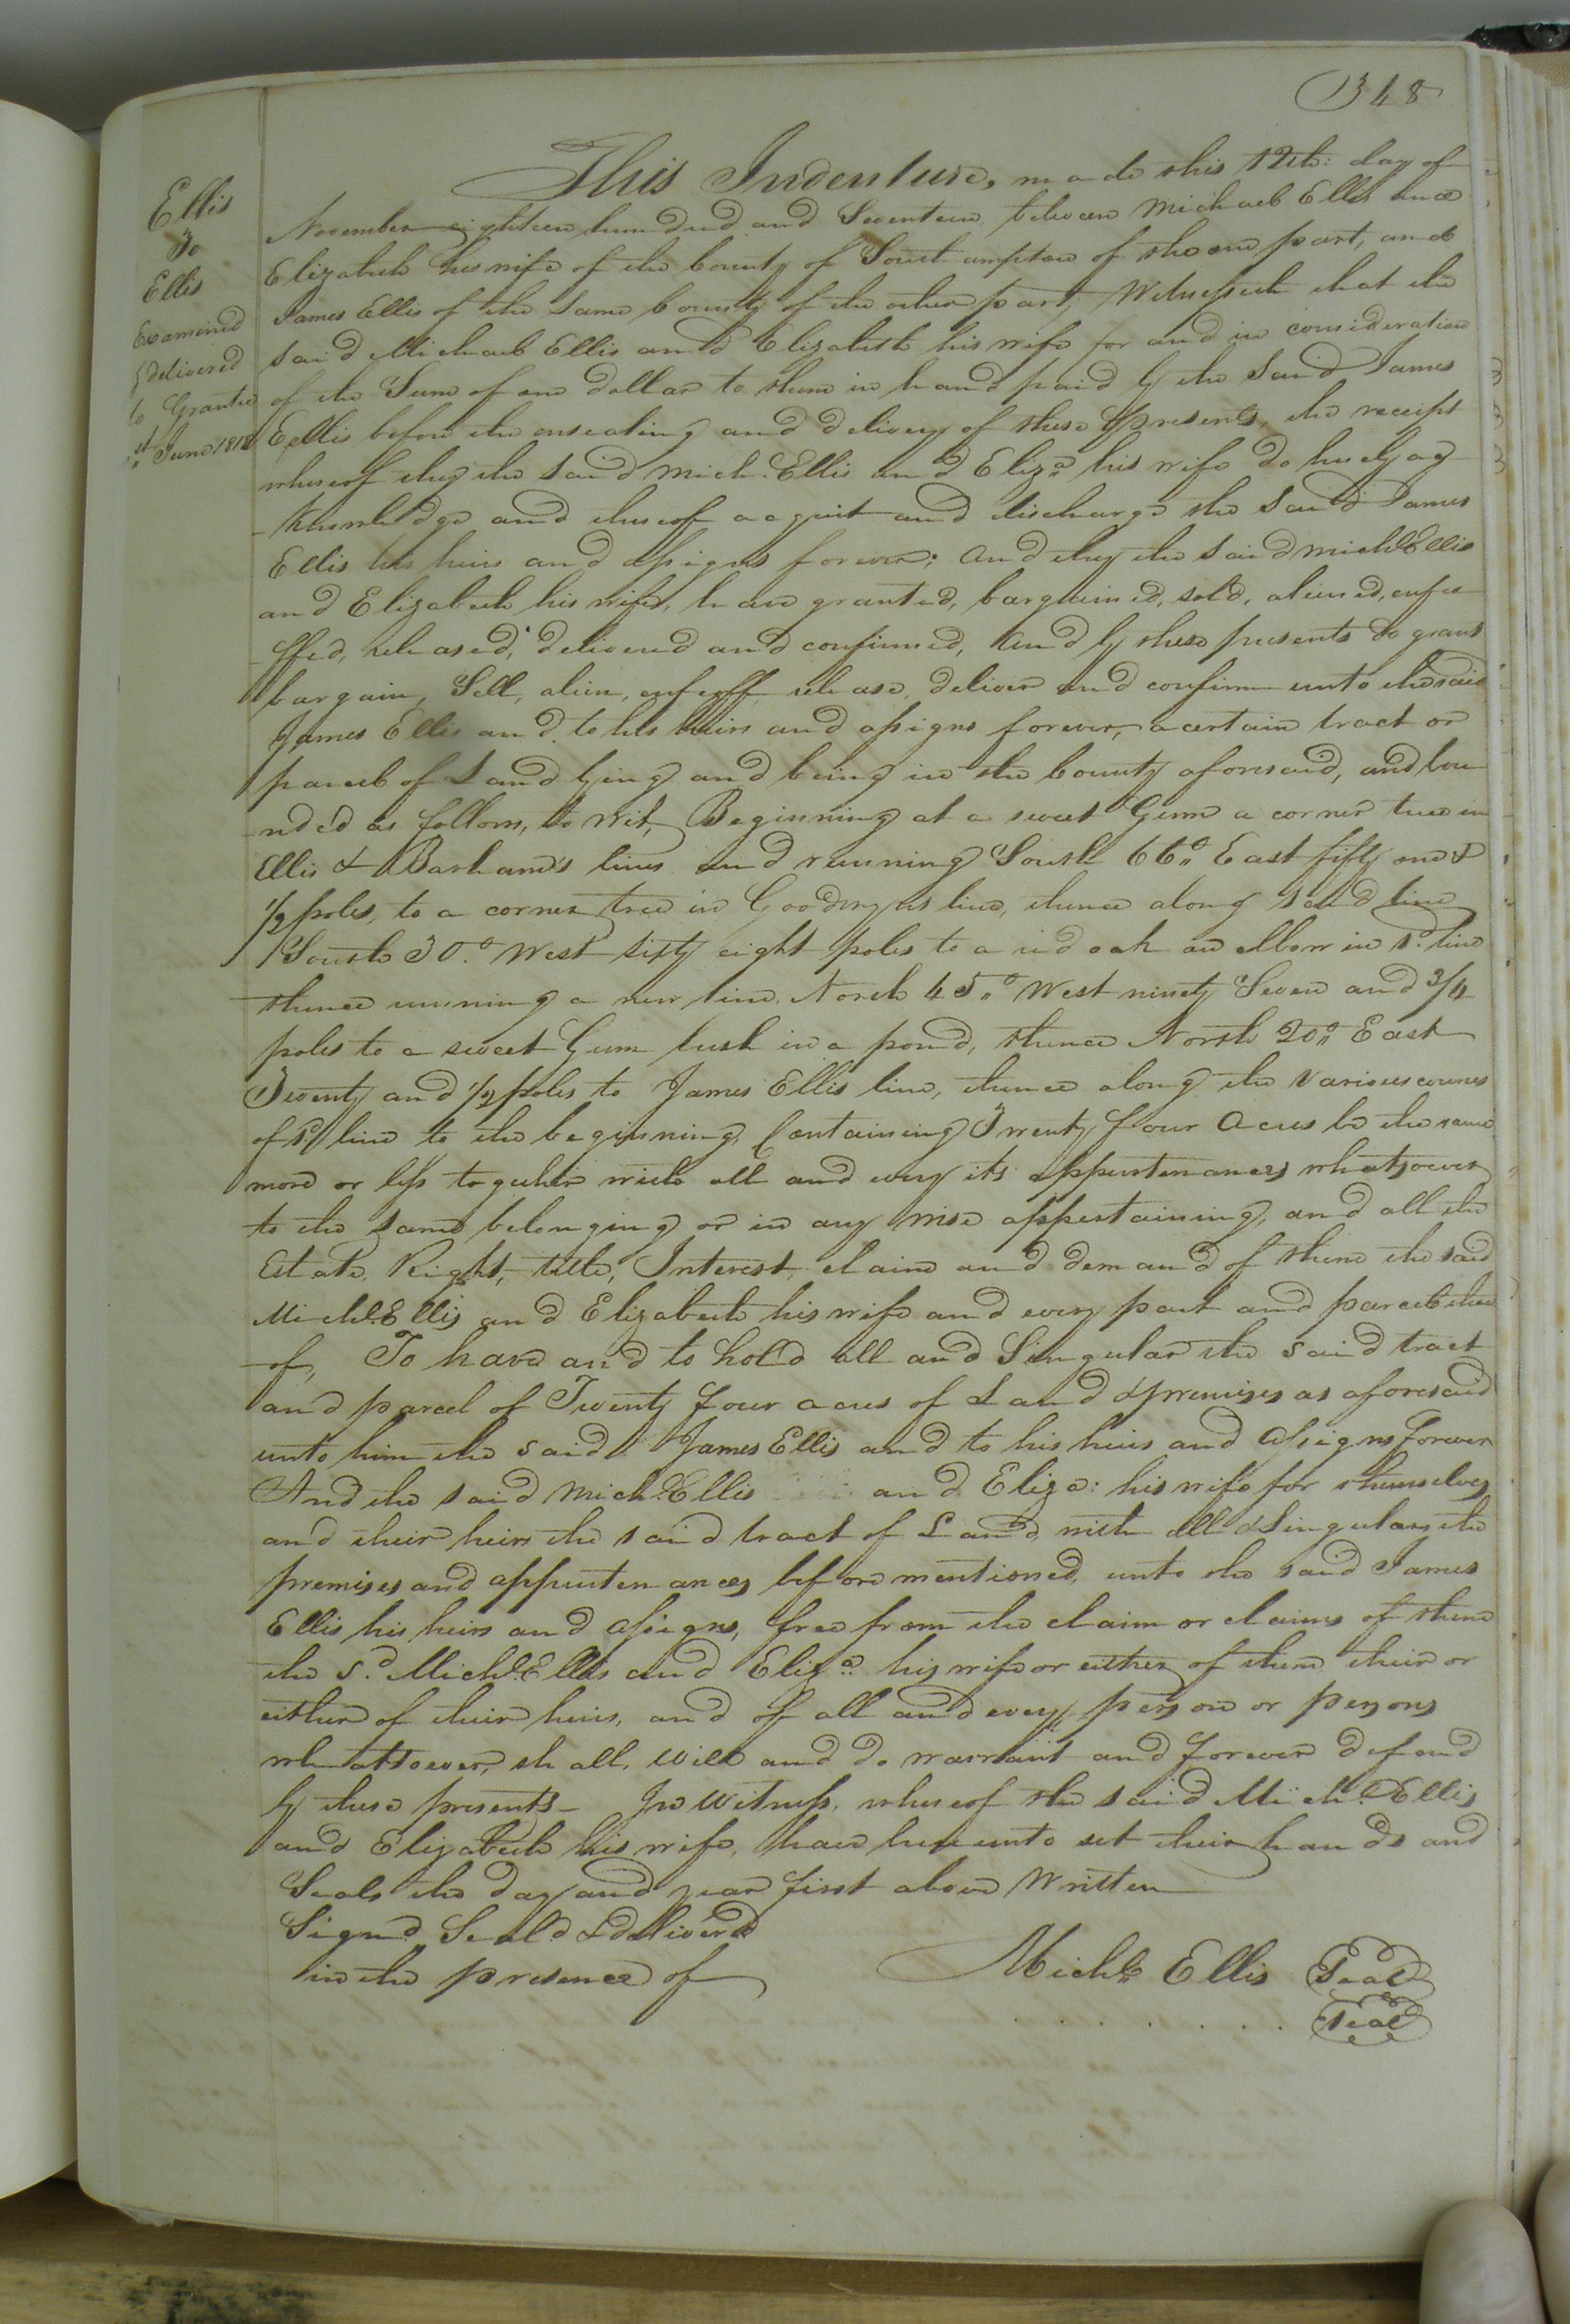 348
Ellis
To
Ellis
Examined
& delivered
to Grantee
1st June 1818
This Indenture, made this 12th: day of
November eighteen hundred and Seventeen between Michael Ellis and
Elizabeth his wife of the County of Southampton of the one part, and
James Ellis of the same County of the other part; Witnesseth that the
said Michael Ellis and Elizabeth his wife for and in consideration
of the Sum of one dollar to them in hand paid by the said James
Ellis before the ensealing and delivery of these presents, the receipt
whereof they the said Mich. Ellis and Eliza. his wife do hereby ac
-knowledge and thereof acquit and discharge the said James
Ellis his heirs and assigns forever; And they the said Michl. Ellis
and Elizabeth his wife, have granted, bargained, sold, aliened, enfeo
-ffed, released, delivered and confirmed, and by these presents do grant
bargain, Sell, alien, enfeoff, release, deliver and confirm unto the said
James Ellis and to his heirs and assigns forever, a certain tract or
parcel of Land lying and being in the County aforesaid, and bou
-nded as follows, to wit, Beginning at a sweet Gum a corner tree in
Ellis & Barham's lines and running South 66° East fifty one &
1/2 poles, to a corner tree in Goodwyns line, thence along said line
South 30.° West sixty eight poles to a red oak an elbow in sd. line
thence running a new line North 45° West ninety Seven and 3/4
poles to a sweet Gum bush in a pond, thence North 20° East
Twenty and 1/2 poles to James Ellis line, thence along the various courses
of sd. line to the beginning, Containing Twenty four Acres be the same
more or less together with all and every its appurtenances whatsoever
to the same belonging or in any wise appertaining, and all the
Estate, Right, title, Interest, claim and demand of them the said
Michl. Ellis and Elizabeth his wife and every part and parcel there
-of, To have and to hold all and Singular the said tract
and parcel of Twenty four acres of Land & premises as aforesaid
unto him the said James Ellis and to his heirs and Assigns forever
And the said Michl. Ellis and Eliza: his wife for themselves
and their heirs the said tract of Land, with all & Singular the
premises and appurtenances before mentioned, unto the said James
Ellis his heirs and Assigns, free from the claim or claims of them
the sd. Michl. Ellis and Eliza. his wife or either of them their or
either of their heirs, and of all and every person or persons
whatsoever, shall, will and do warrant and forever defend
by these presents - In Witness, whereof the said Michl. Ellis
and Elizabeth his wife, have hereunto set their hands and
Seals the day and year first above Written
Signd. Seald. & deliverd
in the presence of
Michl. Ellis Seal
Seal